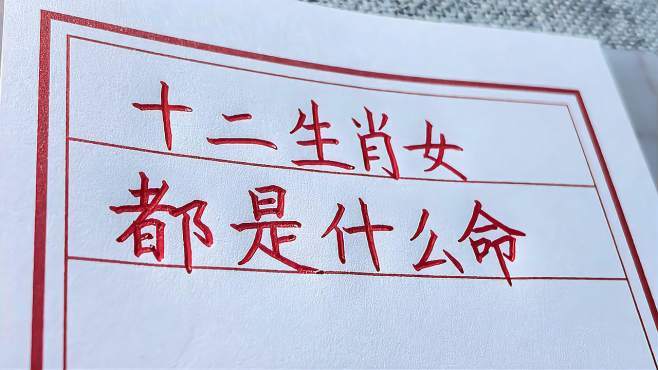 十二生肖女
都是什么命